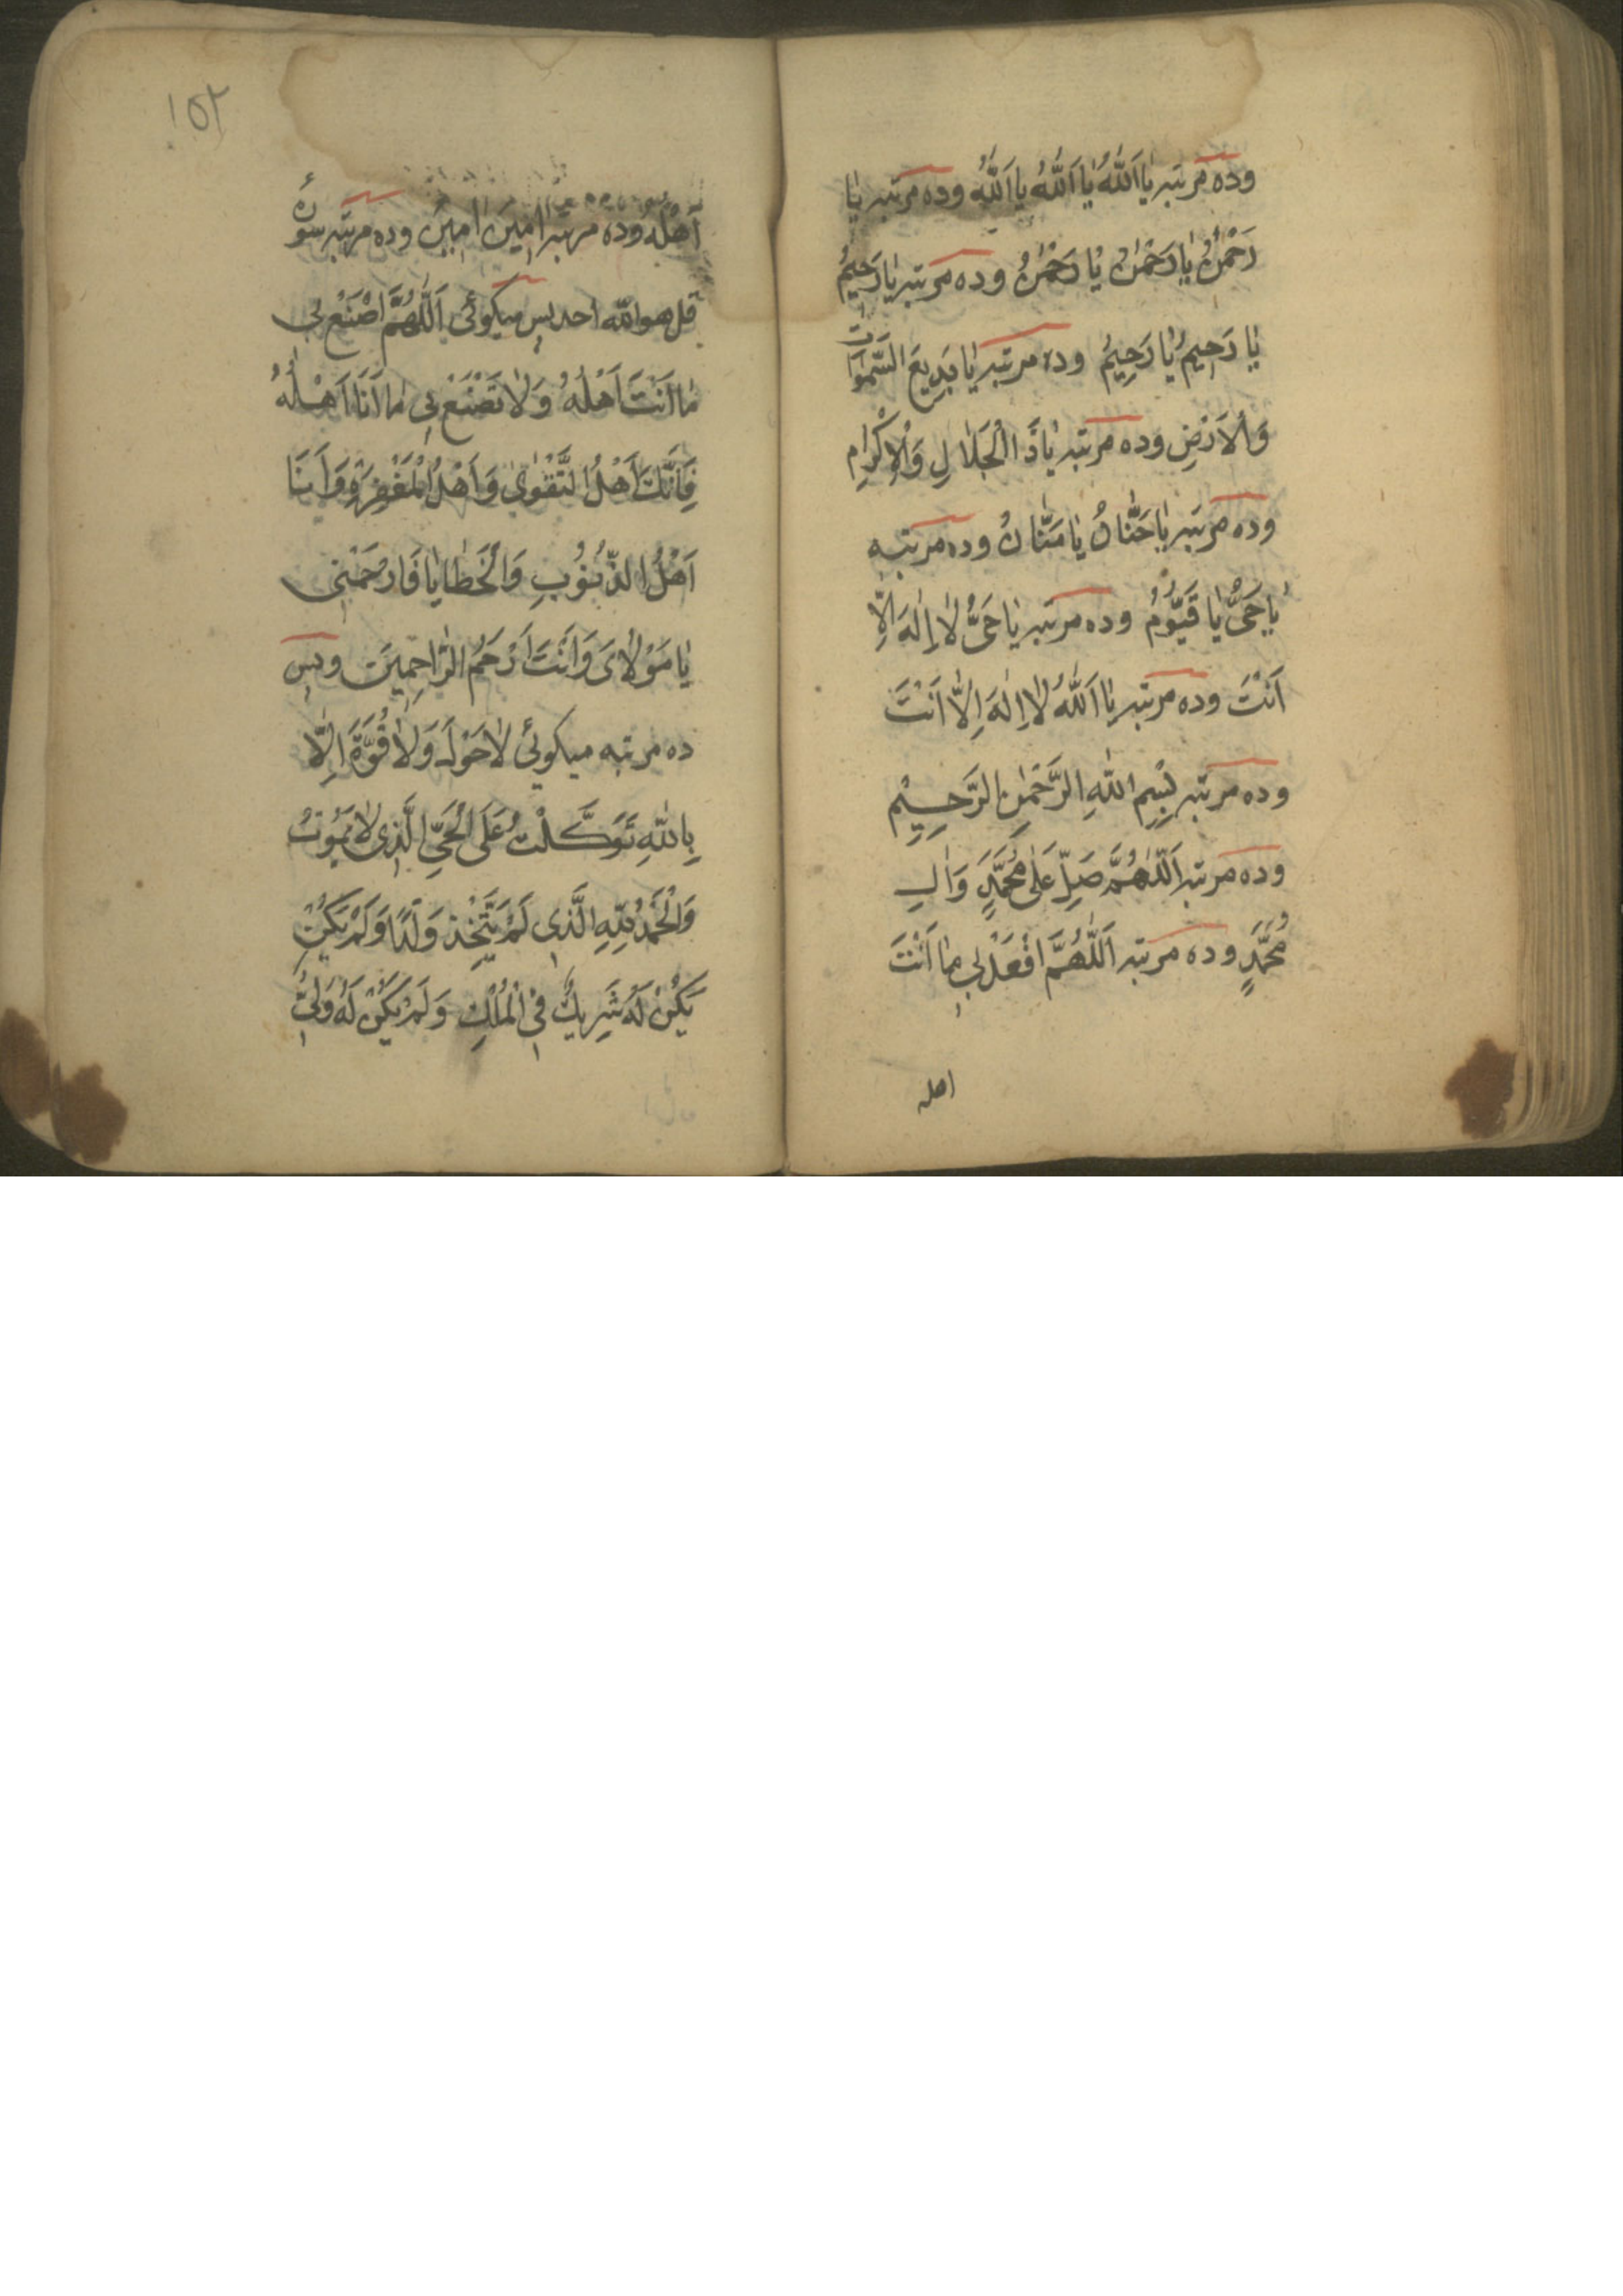 وده مرتبه یا اَللّٰهُ یا اَللّٰهُ یا اَللّٰهُ وده مرتبه یا
رَحْمٰنُ یا رَحْمٰنُ یا رَحْمٰنُ وده مرتبه یا رَحیمُ
یا رَحیمُ یا رَحِیمُ وده مرتبه یا بَدِیعَ السَّمٰوَاتِ
وَالْاَرْضِ وده مرتبه یا ذَا الْجَلٰالِ وَالْاِکْرٰامِ
وده مرتبه یا حَنّٰانُ یا مَنّٰانُ وده مرتبه
یا حَیُّ یا قَیُّوْمُ وده مرتبه یا حَیُّ لٰا اِلٰهَ اِلّٰا
اَنْتَ وده مرتبه یا اَللّٰهُ لٰا اِلٰهَ اِلّٰا اَنْتَ
وده مرتبه بِسْمِ اللّٰهِ الرَّحْمٰنِ الرَّحِیْمِ
وده مرتبه اَللّٰهُمَّ صَلِّ عَلٰی مُحَمَّدٍ وَاٰلِ
مُحَمَّدٍ وده مرتبه اَللّٰهُمَّ افْعَلْ بی مٰا اَنْتَ
اهله
١٥٢
اَهْلُهُ وده مرتبه اٰمینَ اٰمینَ وده مرتبه سورهٔ
قل هو اللّه احد پس میکوئی اَللّٰهُمَّ اصْنَعْ بی
مٰا اَنْتَ اَهْلُهُ وَلٰا تَصْنَعْ بی مٰا اَنَا اَهْلُهُ
فَاِنَّکَ اَهْلُ التَّقْوٰی وَاَهْلُ الْمَغْفِرَةِ وَاَنَا
اَهْلُ الذُّنُوْبِ وَالْخَطٰایٰا فَارْحَمْنی
یٰا مَوْلٰایَ وَاَنْتَ اَرْحَمُ الرّٰاحِمِیْنَ وپس
ده مرتبه میکوئی لٰا حَوْلَ وَلٰا قُوَّةَ اِلّٰا
بِاللّٰهِ تَوَکَّلْتُ عَلَی الْحَیِّ الَّذی لٰا یَمُوْتُ
وَالْحَمْدُ لِلّٰهِ الَّذی لَمْ یَتَّخِذْ وَلَدًا وَلَمْ یَکُنْ
یَکُنْ لَهُ شَرِیکٌ فِی الْمُلْکِ وَلَمْ یَکُنْ لَهُ وَلیٌّ